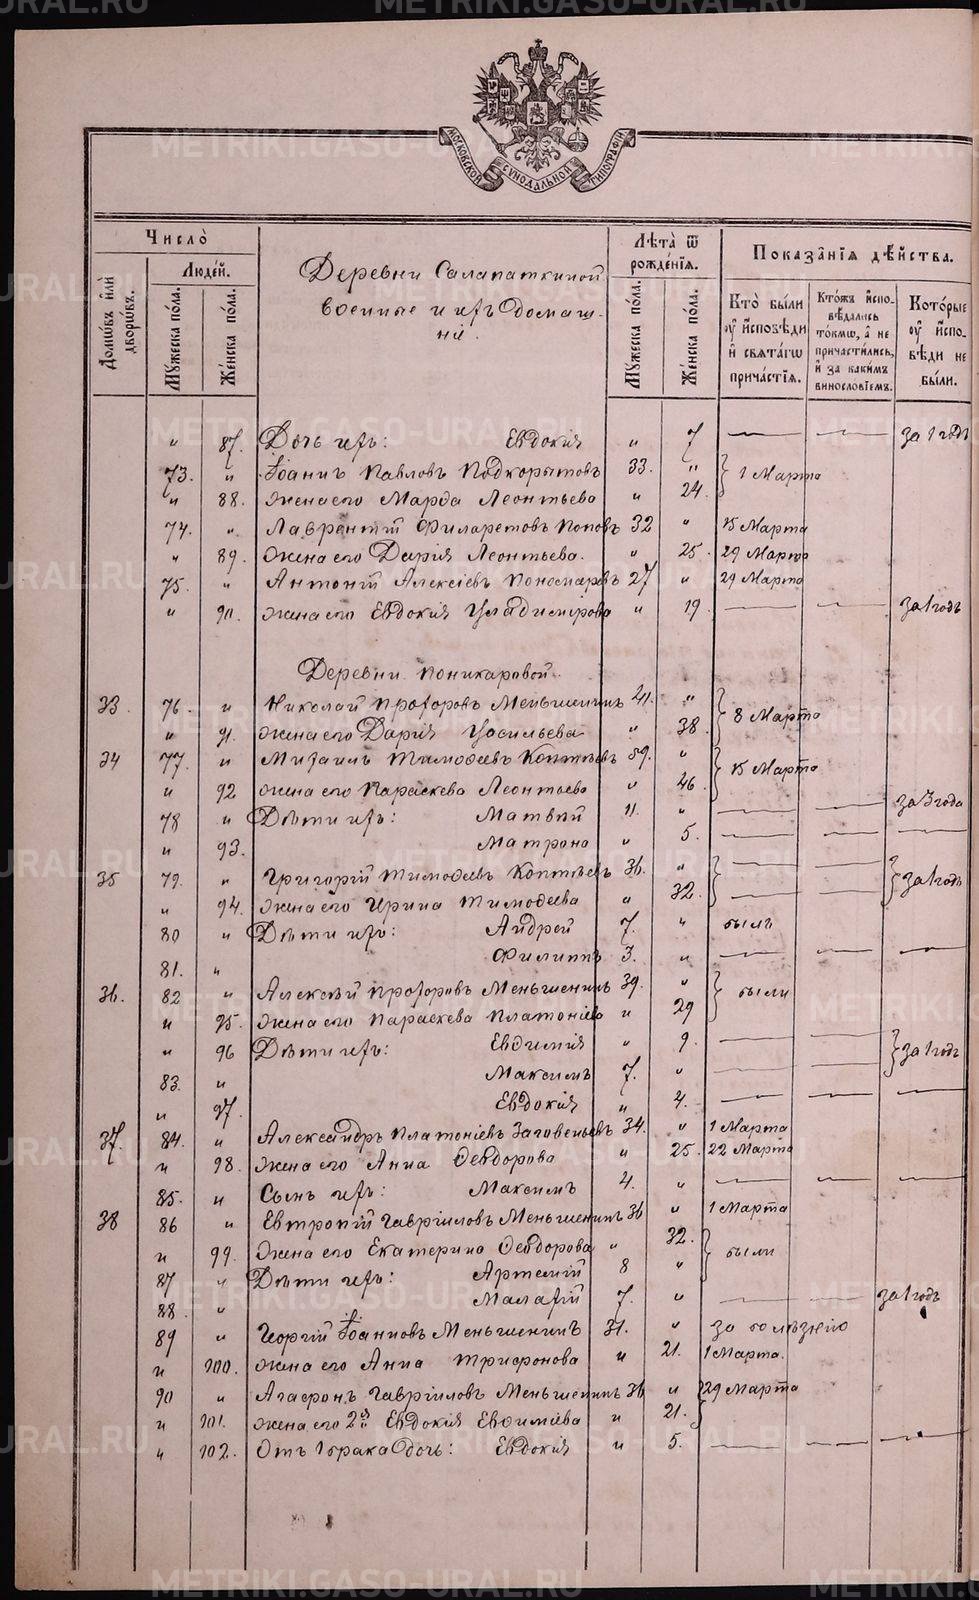 METRIKI.GASO-URAL.RU
МОСКОВСКОЙ СѴНОДАЛЬНОЙ ТИПОГРАФІИ
Число̀
Людей.
Домѡвъ илѝ дворѡвъ.
Мужеска по́ла.
Же́нска по́ла.
Деревни Салапаткиной
военные и ихъ домаш-
ніе.
Лѣта̀ ѿ рожде́нїѧ.
Мужеска по́ла.
Же́нска по́ла.
Показа̑нїѧ дѣйства.
Кто̀ были оу҆ и҆сповѣди и҆ свѧта́гѡ прича́стїѧ.
Кто́жъ и҆спо- вѣдались то́кмѡ, а҆ не причастились, и҆ за какимъ винословїемъ.
Кото́рые оу҆ и҆спо- вѣди не были.
" 87. Дочь ихъ: Евдокія " 7 — — за 1 годъ
73. " Іоаннъ Павловъ Подкорытовъ 33. " } 1 Марта
" 88. Жена его Марѳа Леонтьева " 24.
74. " Лаврентій Филаретовъ Поповъ 32 " 15 Марта
" 89. Жена его Дарія Леонтьева. " 25. 29 Марта
75. " Антоній Алексіевъ Пономаревъ 27 " 29 Марта
" 90. Жена его Евдокія Владимірова " 19. — — за 1 годъ
Деревни Поникаровой.
33. 76. " Николай Прохоровъ Меньшенинъ 41. " } 8 Марта
" 91. Жена его Дарія Васильева " 38.
34 77. " Михаилъ Тимоѳеевъ Коптяевъ 59. " } 15 Марта
" 92 Жена его Параскева Леонтьева " 46.
78 " Дѣти ихъ: Матвѣй 11. " — — за 3 года
" 93. Матрона " 5. — — —
35 79. " Григорій Тимоѳеевъ Коптяевъ 36. " — — } за 1 годъ
" 94. Жена его Ирина Тимоѳеева " 32. — —
80 " Дѣти ихъ: Андрей 7. " былъ
81. " Филиппъ 3. " — — —
36. 82 " Алексѣй Прохоровъ Меньшенинъ 39. " } были
" 95. Жена его Параскева Платоніева " 29
" 96 Дѣти ихъ: Евѳимія " 9. — — } за 1 годъ
83. " Максимъ 7. " — —
" 97. Евдокія " 4. — — —
37. 84. " Александръ Платоніевъ 34. " 1 Марта
" 98. Жена его Анна Ѳеодорова " 25. 22 Марта
85. " Сынъ ихъ: Максимъ 4. " — — —
38 86 " Евтропій Гавріиловъ Меньшенинъ 36 " 1 Марта
" 99. Жена его Екатерина Ѳеодорова " 32. } были
87 " Дѣти ихъ: Артемій 8 "
88. " Малахій 7. " — — за 1 годъ
89 " Георгій Іоанновъ Меньшенинъ 31. " за болѣзнію
" 100. Жена его Анна Трифонова " 21. 1 Марта.
90 " Агафонъ Гавріиловъ Меньшенинъ 36 " } 29 Марта
" 101. Жена его 2я Евдокія Евѳиміева " 21.
" 102. Отъ 1 брака дочь: Евдокія " 5. — — —